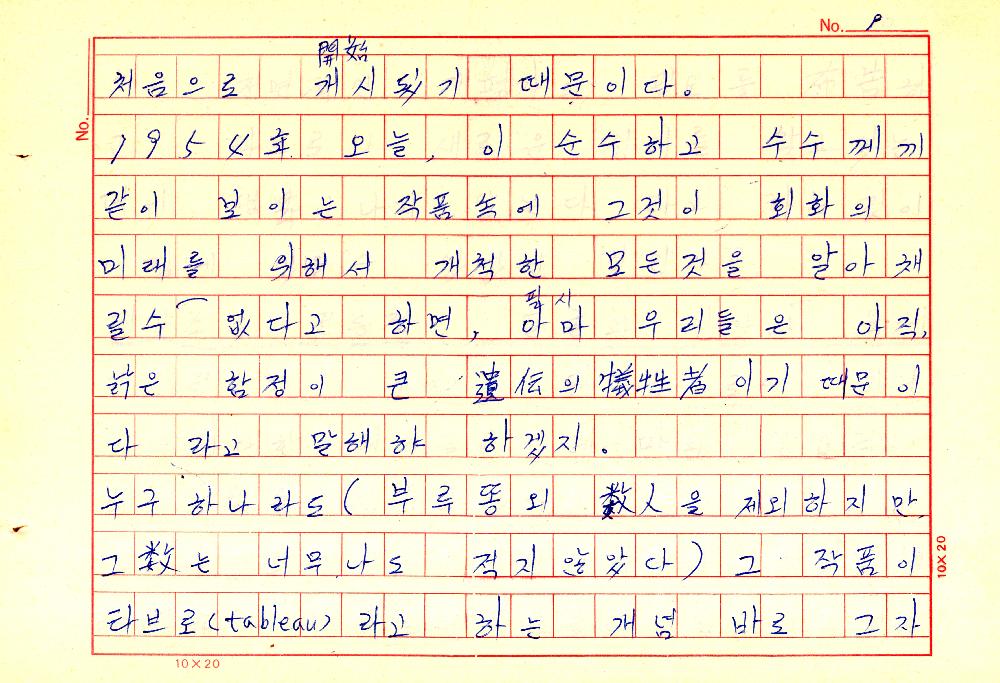 No. 9
開始
처음으로 개시되기 때문이다.
No.
1954年 오늘, 이 순수하고 수수께끼
같이 보이는 작품속에 그것이 회화의
미래를 위해서 개척한 모든것을 알아채
필시
릴수 없다고 하면, 아마 우리들은 아직,
낡은 함정이 큰 遺伝의 犠牲者이기 때문이
다 라고 말해야 하겠지.
누구 하나라도(부루똥외 数人을 제외하지만,
그 数는 너무나도 적지 않았다) 그 작품이
타브로(tableau)라고 하는 개념 바로 그자
10×20
10×20